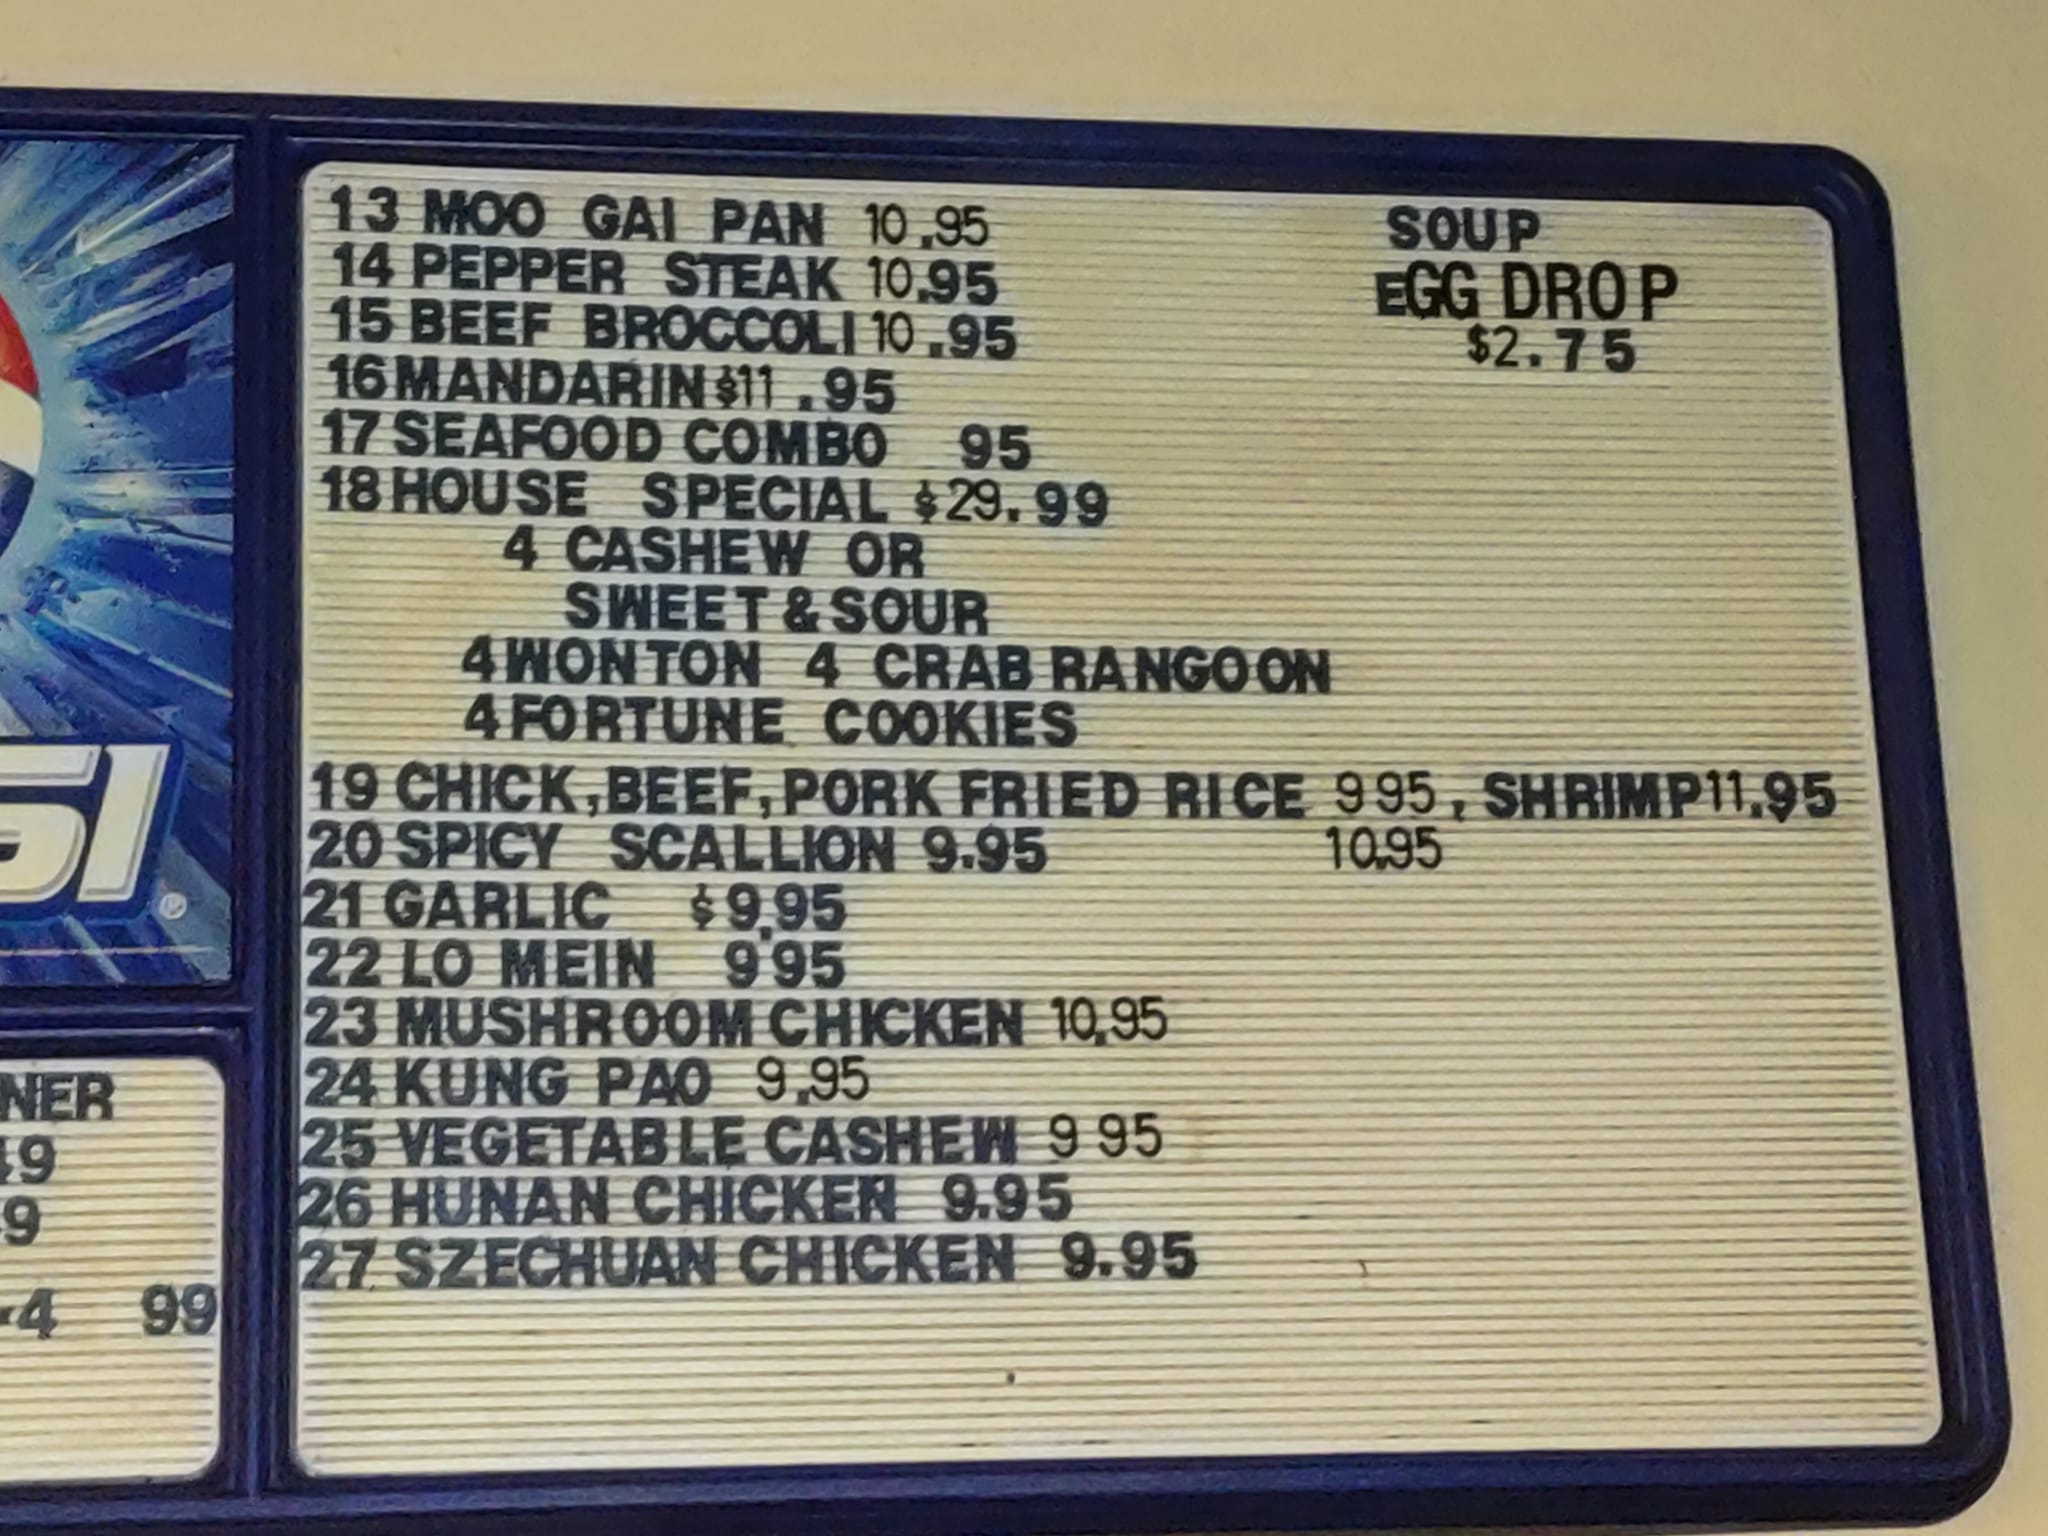 13 MOO GAI PAN 10.95
14 PEPPER STEAK 10.95
15 BEEF BROCCOLI 10.95
16 MANDARIN $11.95
17 SEAFOOD COMBO 95
18 HOUSE SPECIAL $29.99
4 CASHEW OR
SWEET & SOUR
4 WONTON 4 CRAB RANGOON
4 FORTUNE COOKIES
19 CHICK, BEEF, PORK FRIED RICE 9 95, SHRIMP 11.95
20 SPICY SCALLION 9.95 10.95
21 GARLIC $9.95
22 LO MEIN 9.95
23 MUSHROOM CHICKEN 10.95
24 KUNG PAO 9.95
25 VEGETABLE CASHEW 9 95
26 HUNAN CHICKEN 9.95
27 SZECHUAN CHICKEN 9.95
SOUP
EGG DROP
$2.75
SI
®
NER
49
9
4 99